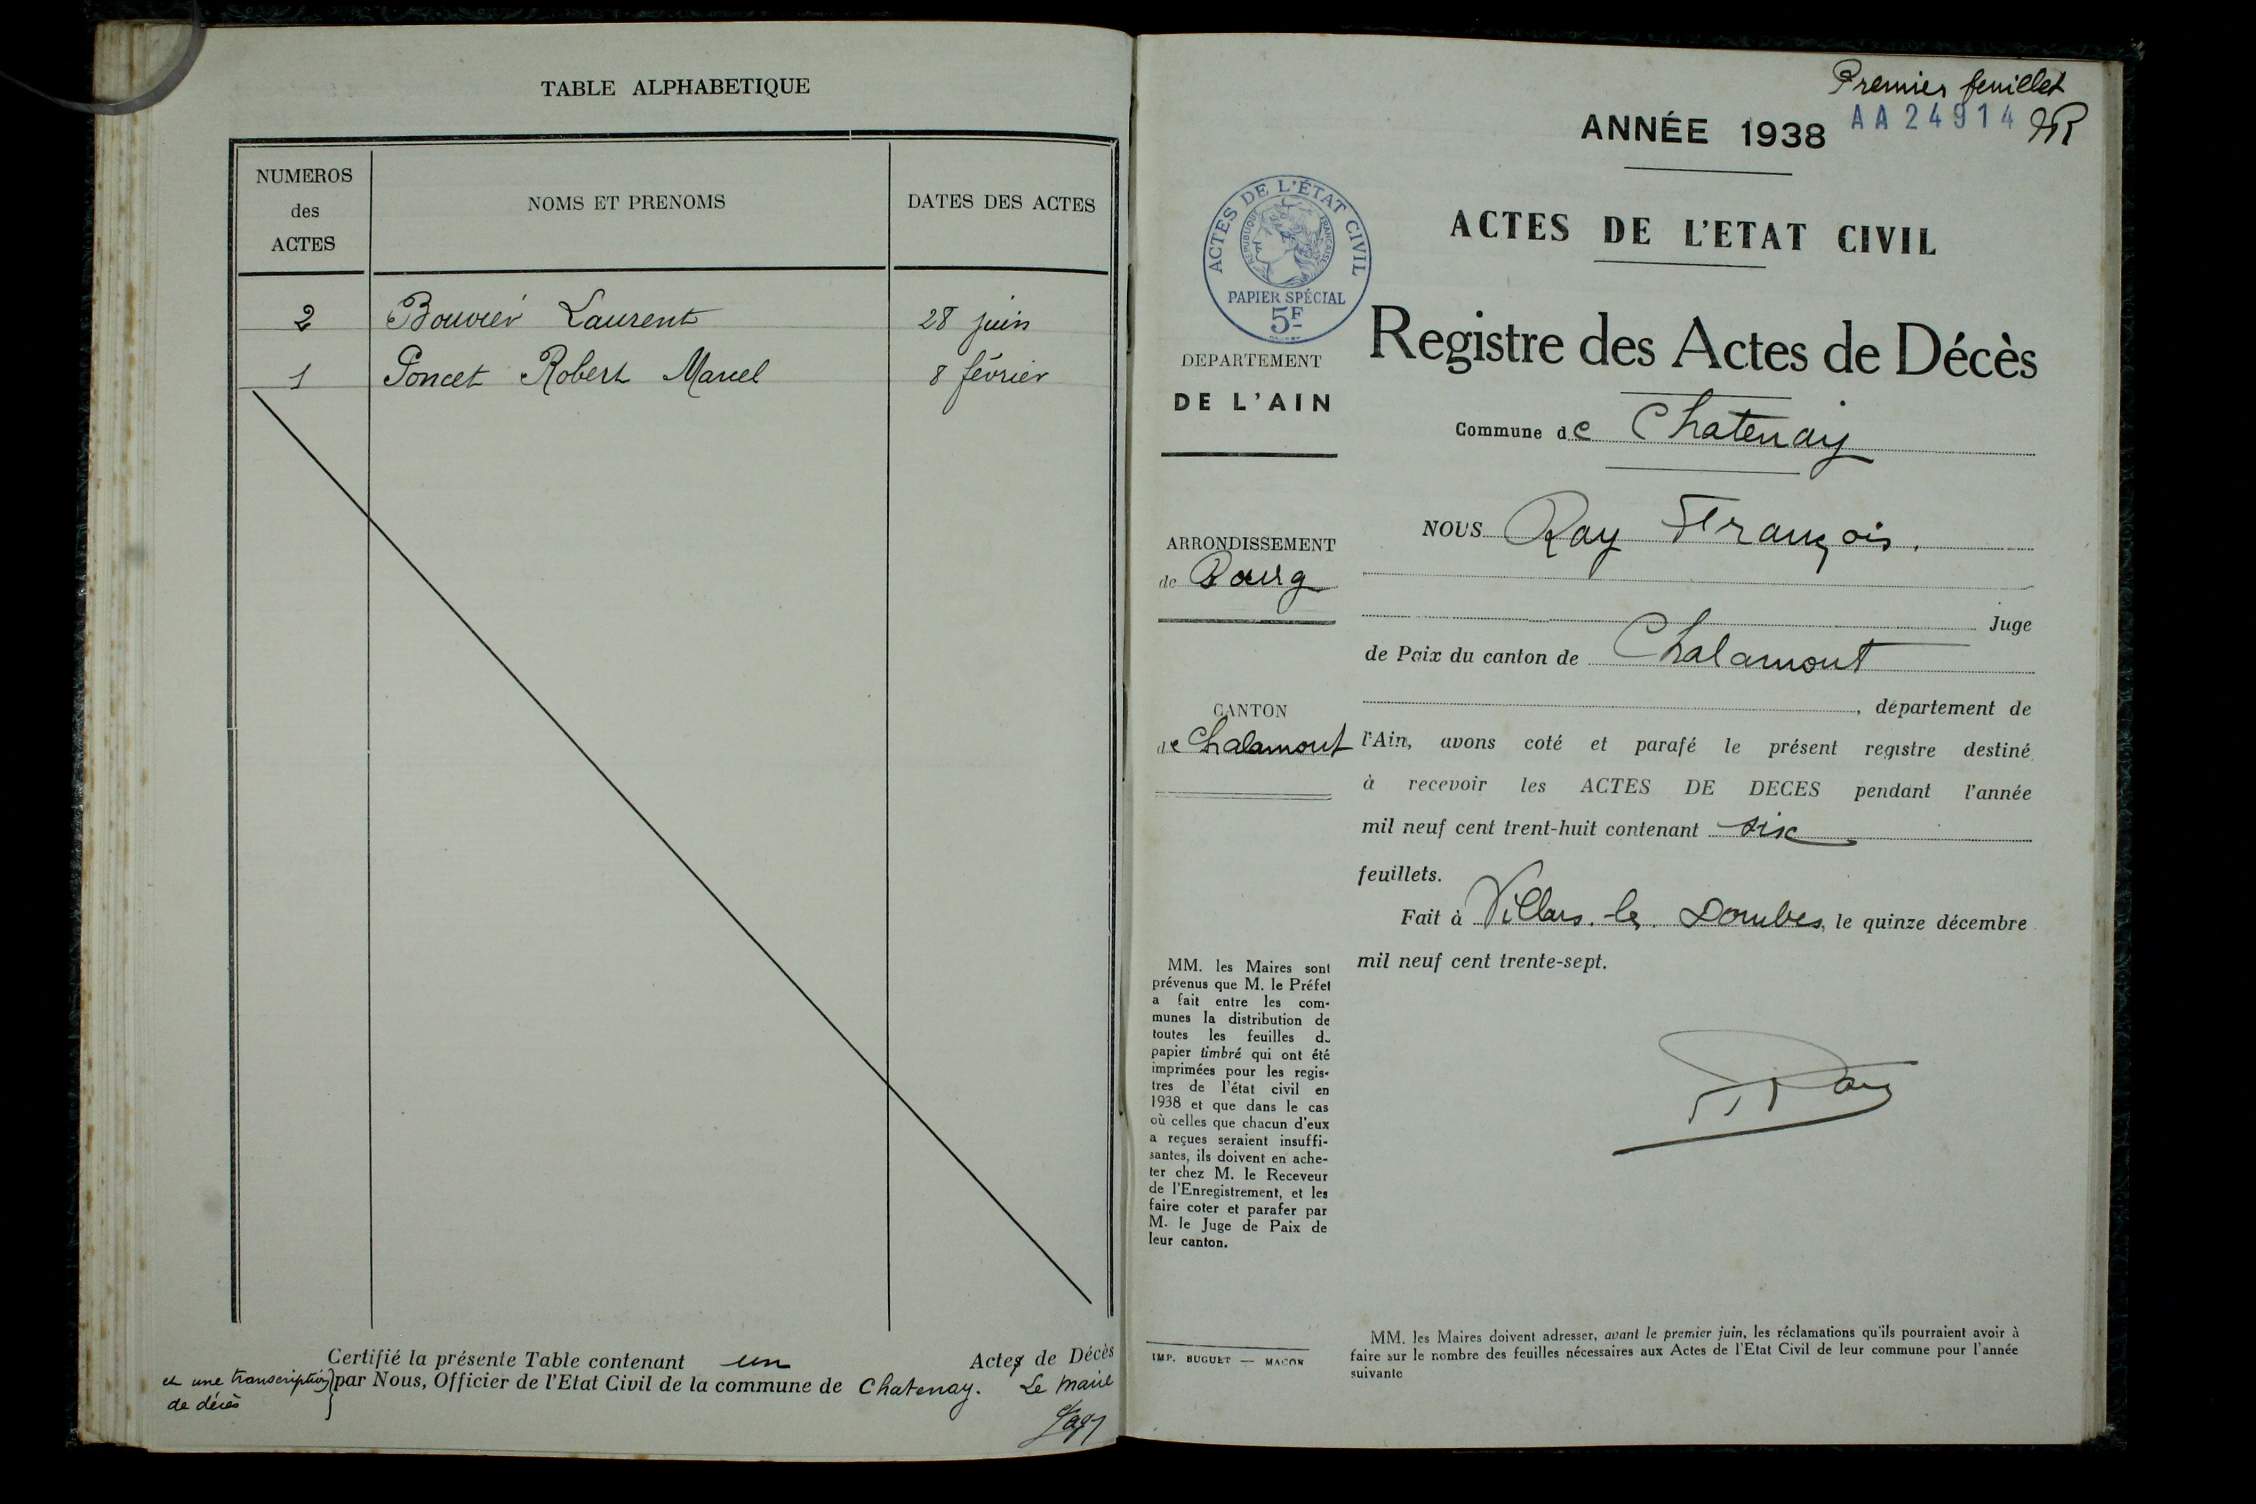 TABLE ALPHABETIQUE
NUMEROS
des
ACTES
NOMS ET PRENOMS
DATES DES ACTES
2 Bouvier Laurent 28 juin
1 Poncet Robert Marcel 8 février
Certifié la présente Table contenant un Actes de Décès
et une transcription par Nous, Officier de l'Etat Civil de la commune de Chatenay. Le Maire
de décès
Premier feuillet
AA24914
ANNÉE 1938
ACTES DE L'ÉTAT CIVIL
REPUBLIQUE FRANCAISE
PAPIER SPÉCIAL
5F
ACTES DE L'ETAT CIVIL
Registre des Actes de Décès
DEPARTEMENT
DE L'AIN
Commune de Chatenay
ARRONDISSEMENT
de Bourg
CANTON
de Chalamont
NOUS Ray François.
Juge
de Paix du canton de Chalamont
, département de
l'Ain, avons coté et parafé le présent registre destiné
à recevoir les ACTES DE DECES pendant l'année
mil neuf cent trent-huit contenant six
feuillets.
Fait à Villars-les-Dombes, le quinze décembre
mil neuf cent trente-sept.
Ray
MM. les Maires sont
prévenus que M. le Préfet
a fait entre les com-
munes la distribution de
toutes les feuilles d
papier timbré qui ont été
imprimées pour les regis-
tres de l'état civil en
1938 et que dans le cas
où celles que chacun d'eux
a reçues seraient insuffi-
santes, ils doivent en ache-
ter chez M. le Receveur
de l'Enregistrement, et les
faire coter et parafer par
M. le Juge de Paix de
leur canton.
IMP. BUGUET — MACON
MM. les Maires doivent adresser, avant le premier juin, les réclamations qu'ils pourraient avoir à
faire sur le nombre des feuilles nécessaires aux Actes de l'Etat Civil de leur commune pour l'année
suivante